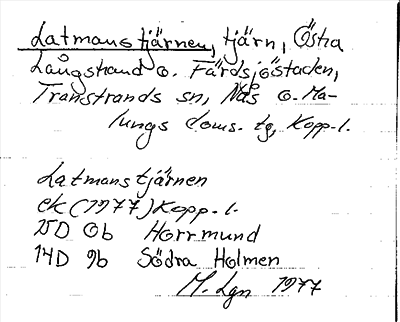 Latmanstjärnen, tjärn, Östra
Långstrand o. Färdsjöstaden,
Transtrands sn, Nås o. Ma-
lungs doms. tg, Kopp. l.
Latmanstjärnen
ek (1977) Kopp. l.
15D 0b Horrmund
14D 9b Södra Holmen
M. Lgn 1977